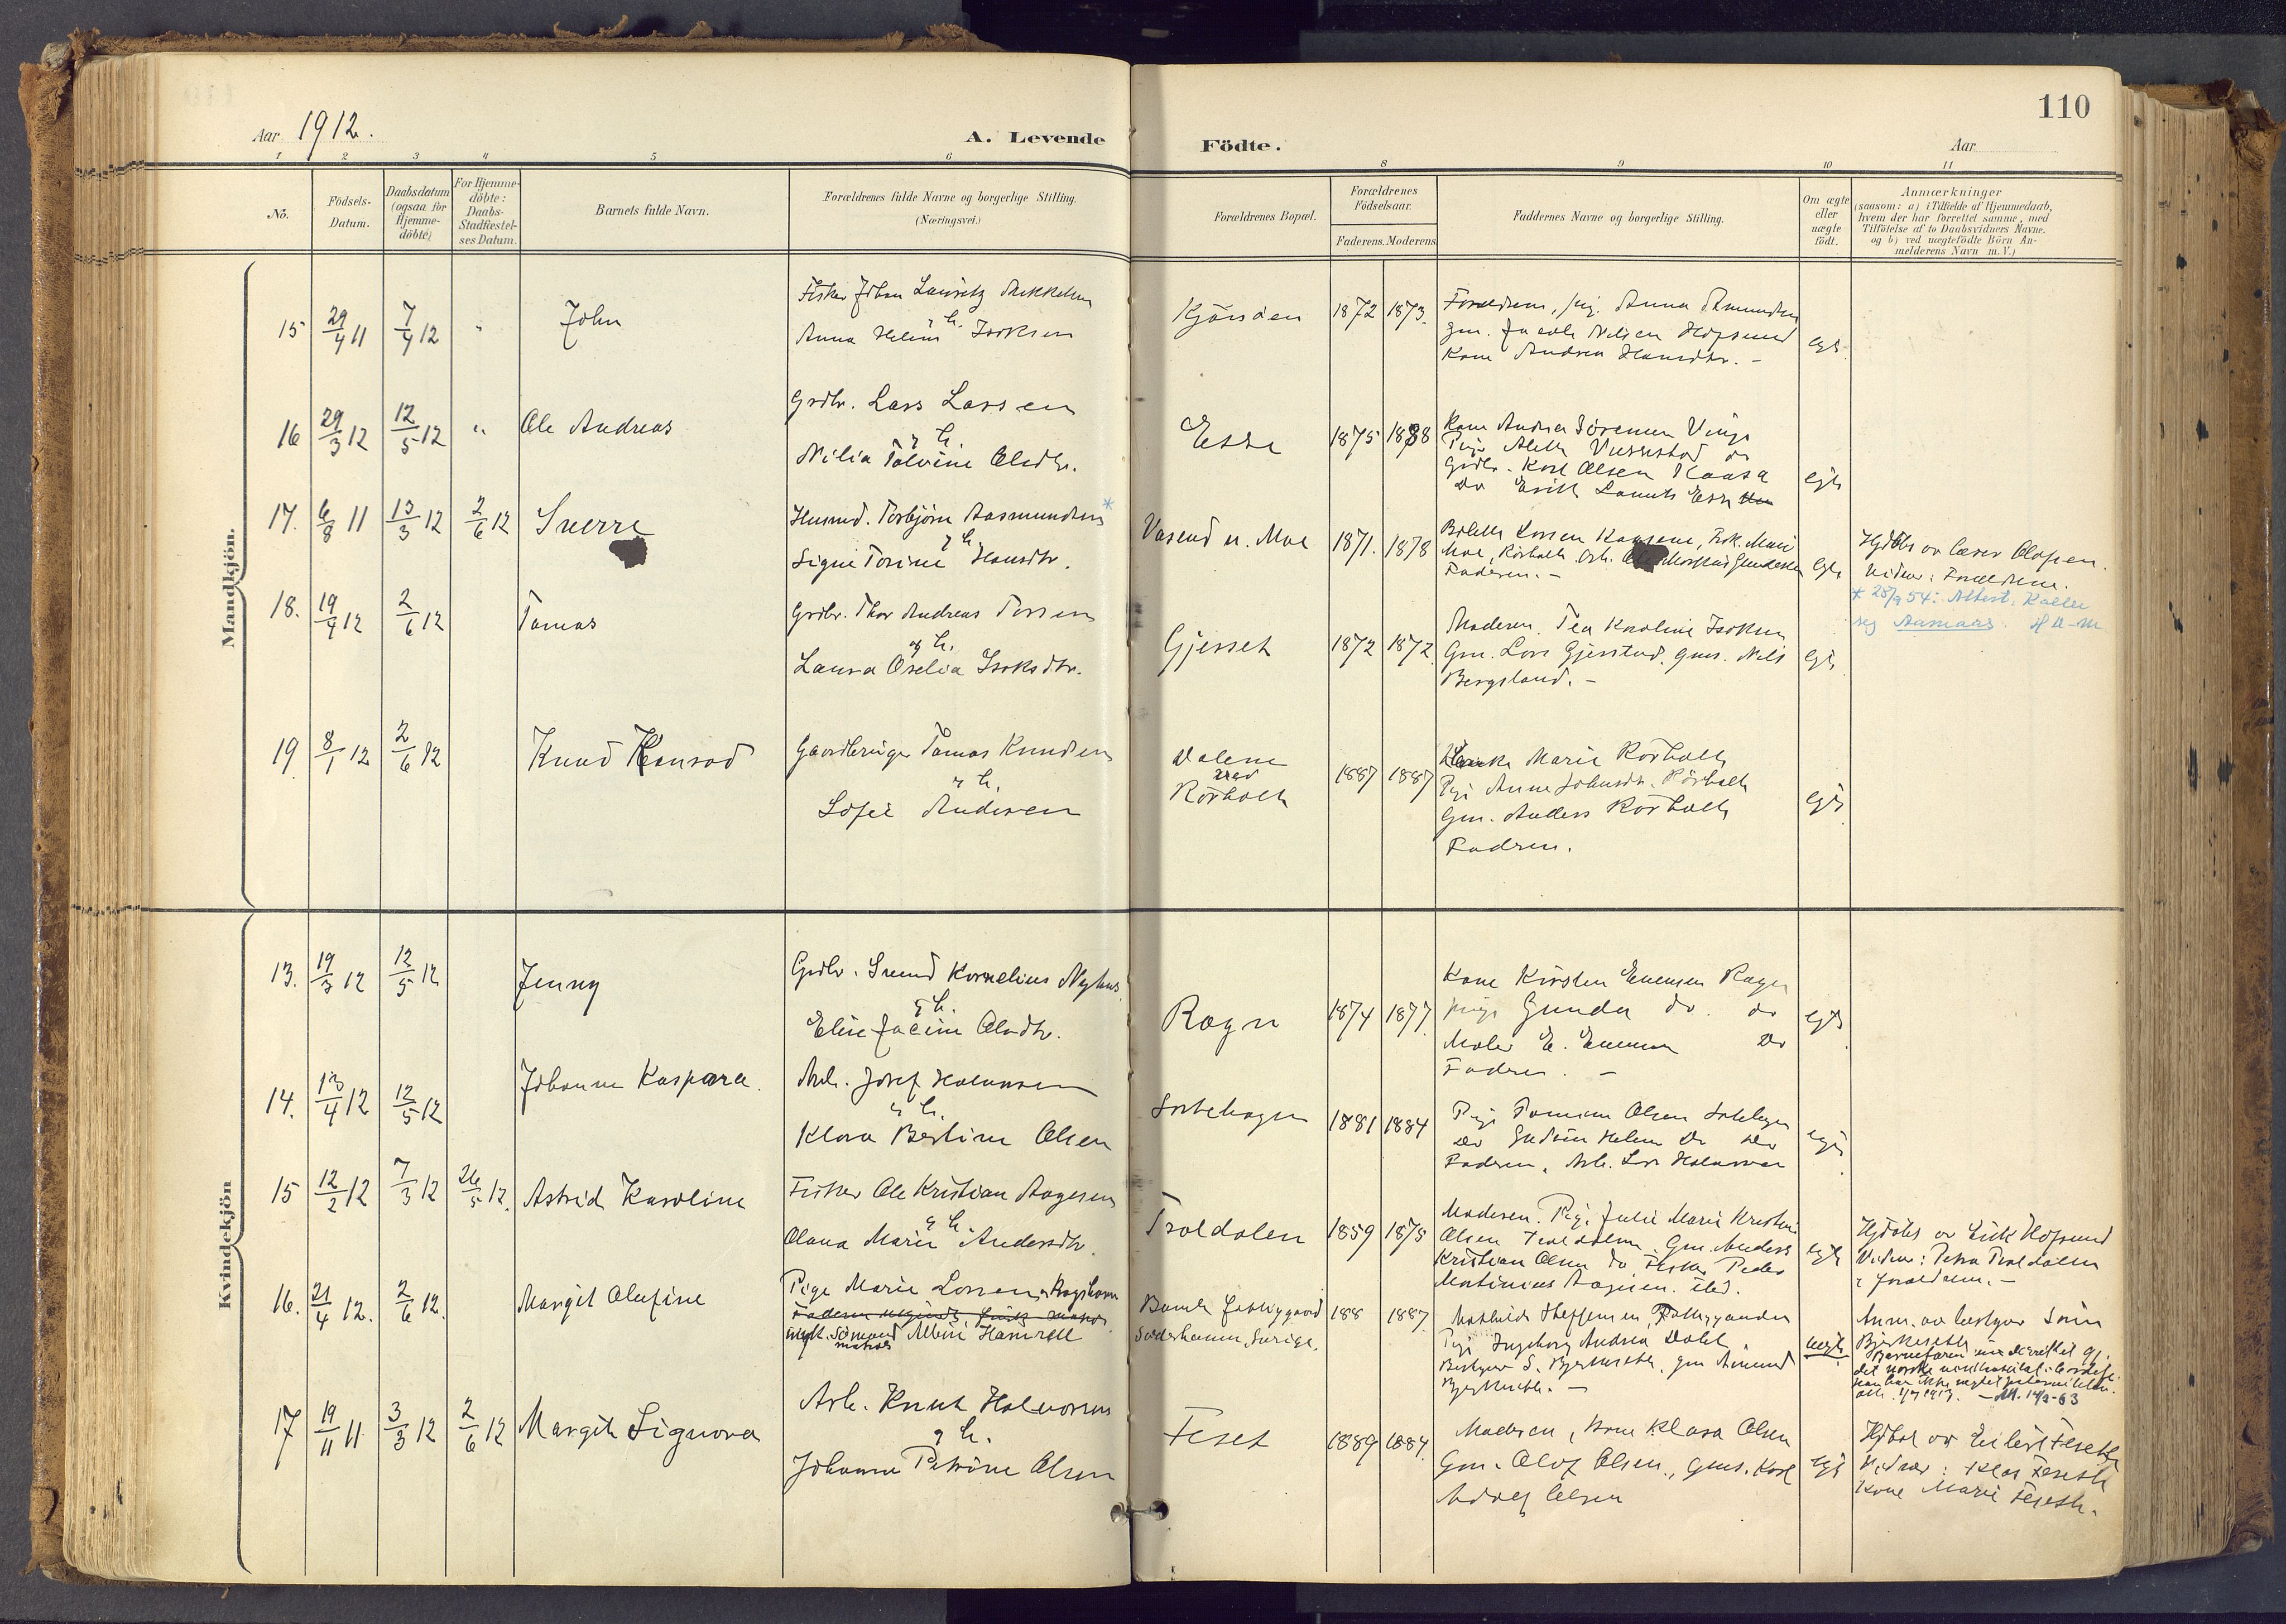 110
Aar 1912.
A. Levende Födte.
Aar
1 2 3 4 5 6 8 9 10 11
No.
Födsels-
Datum.
Daabsdatum
(ogsaa for
Hjemme-
döbte)
For Hjemme-
döbte:
Daabs-
Stadfæstel-
ses Datum.
Barnets fulde Navn.
Forældrenes fulde Navne og borgerlige Stilling.
(Næringsvei.)
Forældrenes Bopæl.
Forældrenes
Födselsaar.
Faderens. Moderens
Faddernes Navne og borgerlige Stilling.
Om ægte
eller
uægte
födt.
Anmærkninger
(saasom: a) i Tilfælde af Hjemmedaab,
hvem der har forrettet samme, med
Tilföielse af to Daabsvidners Navne.
og b) ved uægtefödte Börn An-
melderens Navn m.V.)
Mandkjön.
15 29/4 11 7/4 12 " John
Fisker Johan Lauritz Mikkelsen
& h.
Anna Helene Isaksen
1872 1873.
Forældrene, pig. Anna Amundsen
gm. Jacob Nilsen Hafsund
Kone Andrea Hansdtr. -
egt.
16 29/3 12 12/5 12 " Ole Andreas
Grdbr. Lars Larsen
& h.
Nilia Tolvine Olsdtr.
Esse
1875 1888
Kone Andrea Sörensen Vinje
Pige Aleth Vissestad do
Grdbr. Karl Olsen Kaasa
Do Erik Esse
egt.
17. 6/8 11 13/3 12 2/6 12 Sverre
Husmd. Torbjörn Aasmundsen *
& h.
Signe Torine Hansdtr.
Vasend u. Moe
1871. 1878
Larsen
Moe, Rörholt
Faderen. -
egt.
Hjdbt av Olafsen.
Vidner: Forældrene.
* 28/9 54: Albert. Kaller
seg Aamaas. H A-M
18. 19/4 12 2/6 12 Tomas
Grdbr. Thor Andreas Torsen
og h.
Laura Oselia Isaksdtr.
Gjerset
1872 1872.
Moderen. Tea Karoline Isaksen
Gm. Lars Gjerstad. gms. Nils
Bergsland. -
egt.
19 8/1 12 2/6 12 Knud Konrad
Gaardbruger Tomas Knudsen
& h.
Sofie Andersen
Dalene
ved
Rörholt
1887 1887
Enke Marie Rörholt
Pige Anne Johnsdtr. Rörholt
Gm. Anders Rörholt
Fadren.
egt.
Kvindekjön
13. 19/3 12 12/5 12 Jenny
Grdbr. Svend Kornelius Nyhus
& h.
Elise Jacine Olsdtr.
Rogn
1874 1877.
Kone Kirsten Evensen Rogn
pige Gunda do. do
Maler E. Evensen Do
Fadren. -
egt.
14. 13/4 12 12/5 12 Johanne Kaspara.
Arb. Josef Halvorsen
& h.
Klara Bertine Olsen
Sortehogen
1881 1884
Pige Olsen Sortehogen
Do Helene Do Do
Faderen, Arb. Lars Halvorsen
egt.
15 12/2 12 7/3 12 26/5 12. Astrid Karoline
Fisker Ole Kristian Aagesen
& h.
Olava Marie Andersdtr.
Troldalen
1859 1875
Moderen. Pige Julie Marie Kristine
Olsen Troldalen. Gm. Anders
Kristian Olsen do Fisker Peder
Martinius Aagesen. ibd.
egt.
Hjdbt av Erik Hafsund
Vidner: Petra Troldalen
& Forældrene. -
16. 21/4 12. 2/6 12. Margit Olufine
Pige Marie Larsen,
Faderen
ungk. Sömand Albin Hamrell
matros
Bamle fattiggaard
Söderhamn, Sverige.
188 1887.
Mathilde Steffensen, Fattiggaarden
Pige Ingeborg Andrea Dahl
Bestyrer S. Bjerkeseth, gm Amund
Bjerkeseth. -
uegt.
Anm. av bestyrer Sörin
Bjerkeseth
17 19/11 11 3/3 12 2/6 12 Margit Signora
Arb. Knut Halvorsen
& h.
Johanne Petrine Olsen
Feset
1889 1884.
Moderen, Kone Klara Olsen
Gm. Olaf Olsen., gms. Karl
Adolf Olsen
egt
Hjdbt av Eilert Feseth
Vidner: Klas Feseth
Kone Marie Feseth.